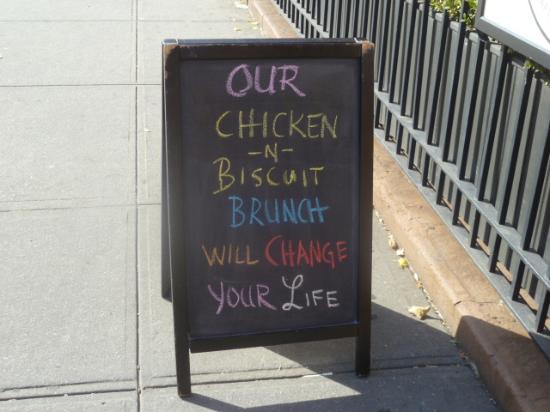 OUR
CHICKEN
-N-
BISCUIT
BRUNCH
WILL CHANGE
YOUR LIFE